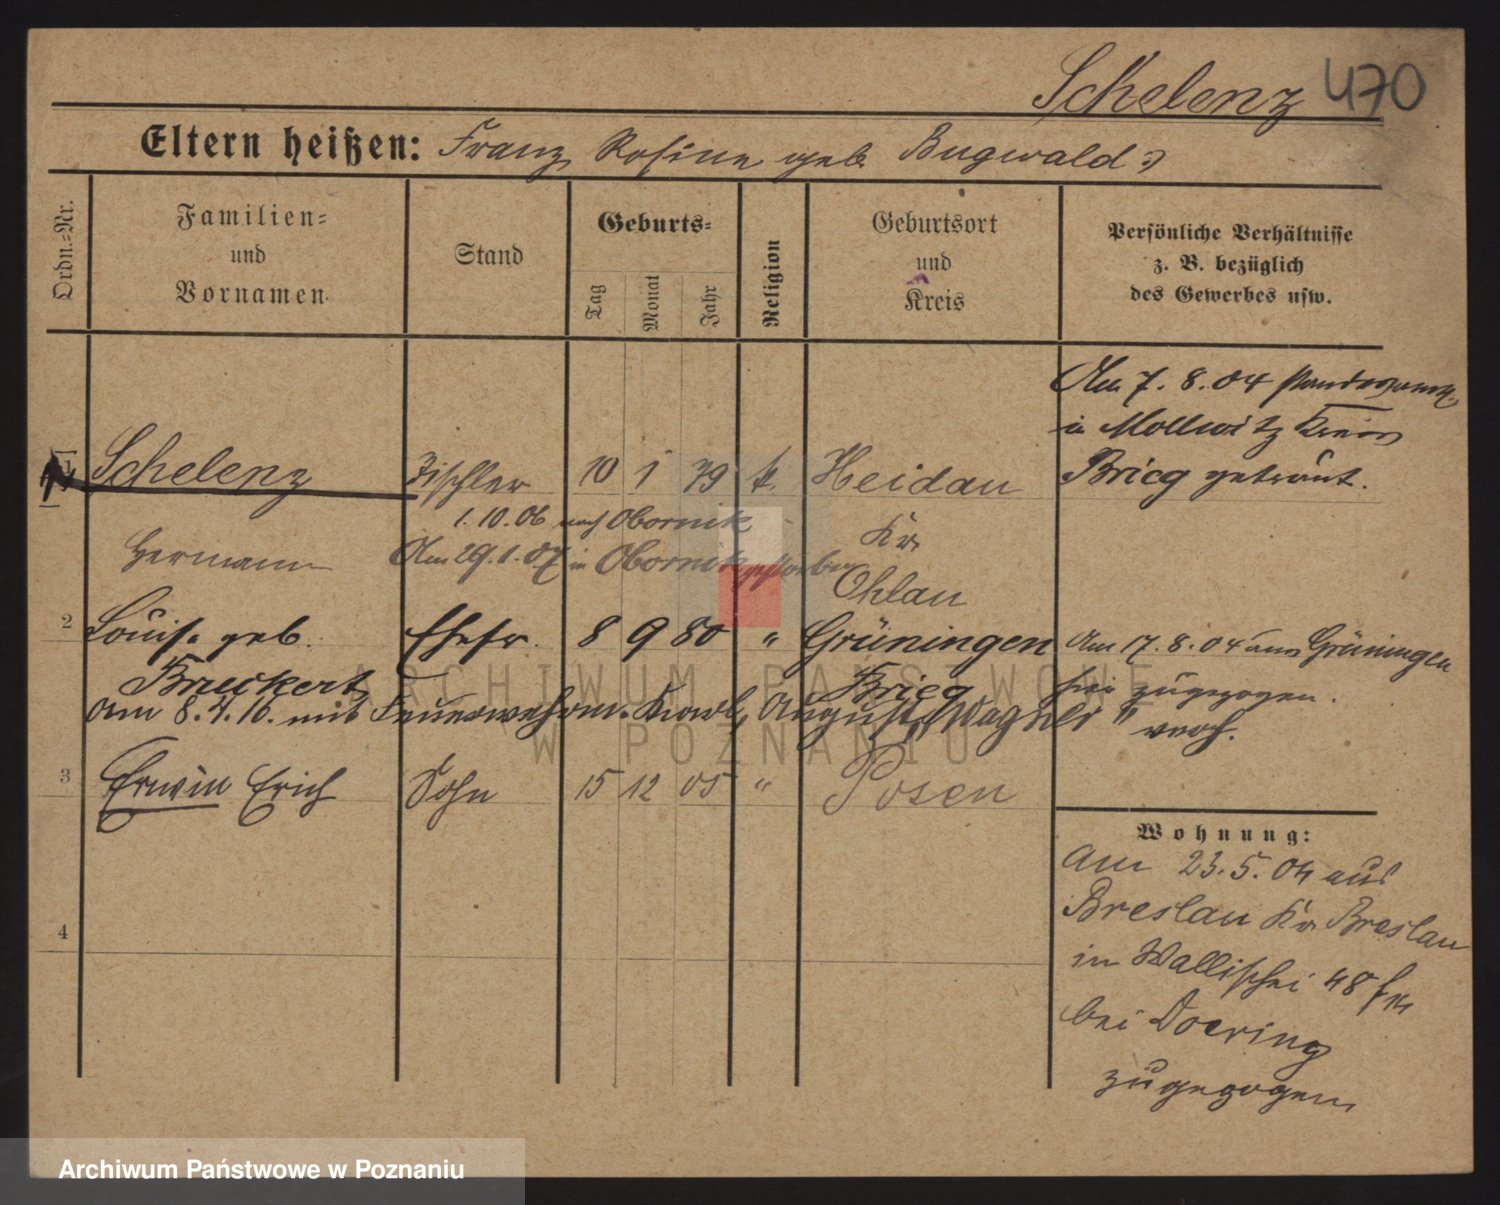 Schelenz 470
Eltern heißen: Franz Rosine geb. Bugwald
Ordn.=Nr.
Familien=
und
Vornamen
Stand
Geburts=
Tag
Monat
Jahr
Religion
Geburtsort
und
Kreis
Persönliche Verhältnisse
z. B. bezüglich
des Gewerbes usw.
Am 7. 8. 04 Standesamt
in Mollwitz Kreis
Brieg getraut.
1 Schelenz Tischler 10 1 79 k. Heidau
1. 10. 06 nach Obornik
Hermann Am 29. 1. 07 in Obornik gestorben
Kr.
Ohlau
2 Louise geb. Ehefr. 8 9 80 " Grüningen
Brieg
Am 17. 8. 04 aus Grüningen
hier zugezogen.
am 8. 4. 16. mit Feuerwehrm. Karl, August "Wagner" verh.
3 Erwin Erich Sohn 15 12 05 " Posen
4
Wohnung:
am 23. 5. 04 aus
Breslau Kr. Breslau
in Wallischei 48
bei Doering
zugezogen
ARCHIWUM PAŃSTWOWE
W POZNANIU
Archiwum Państwowe w Poznaniu